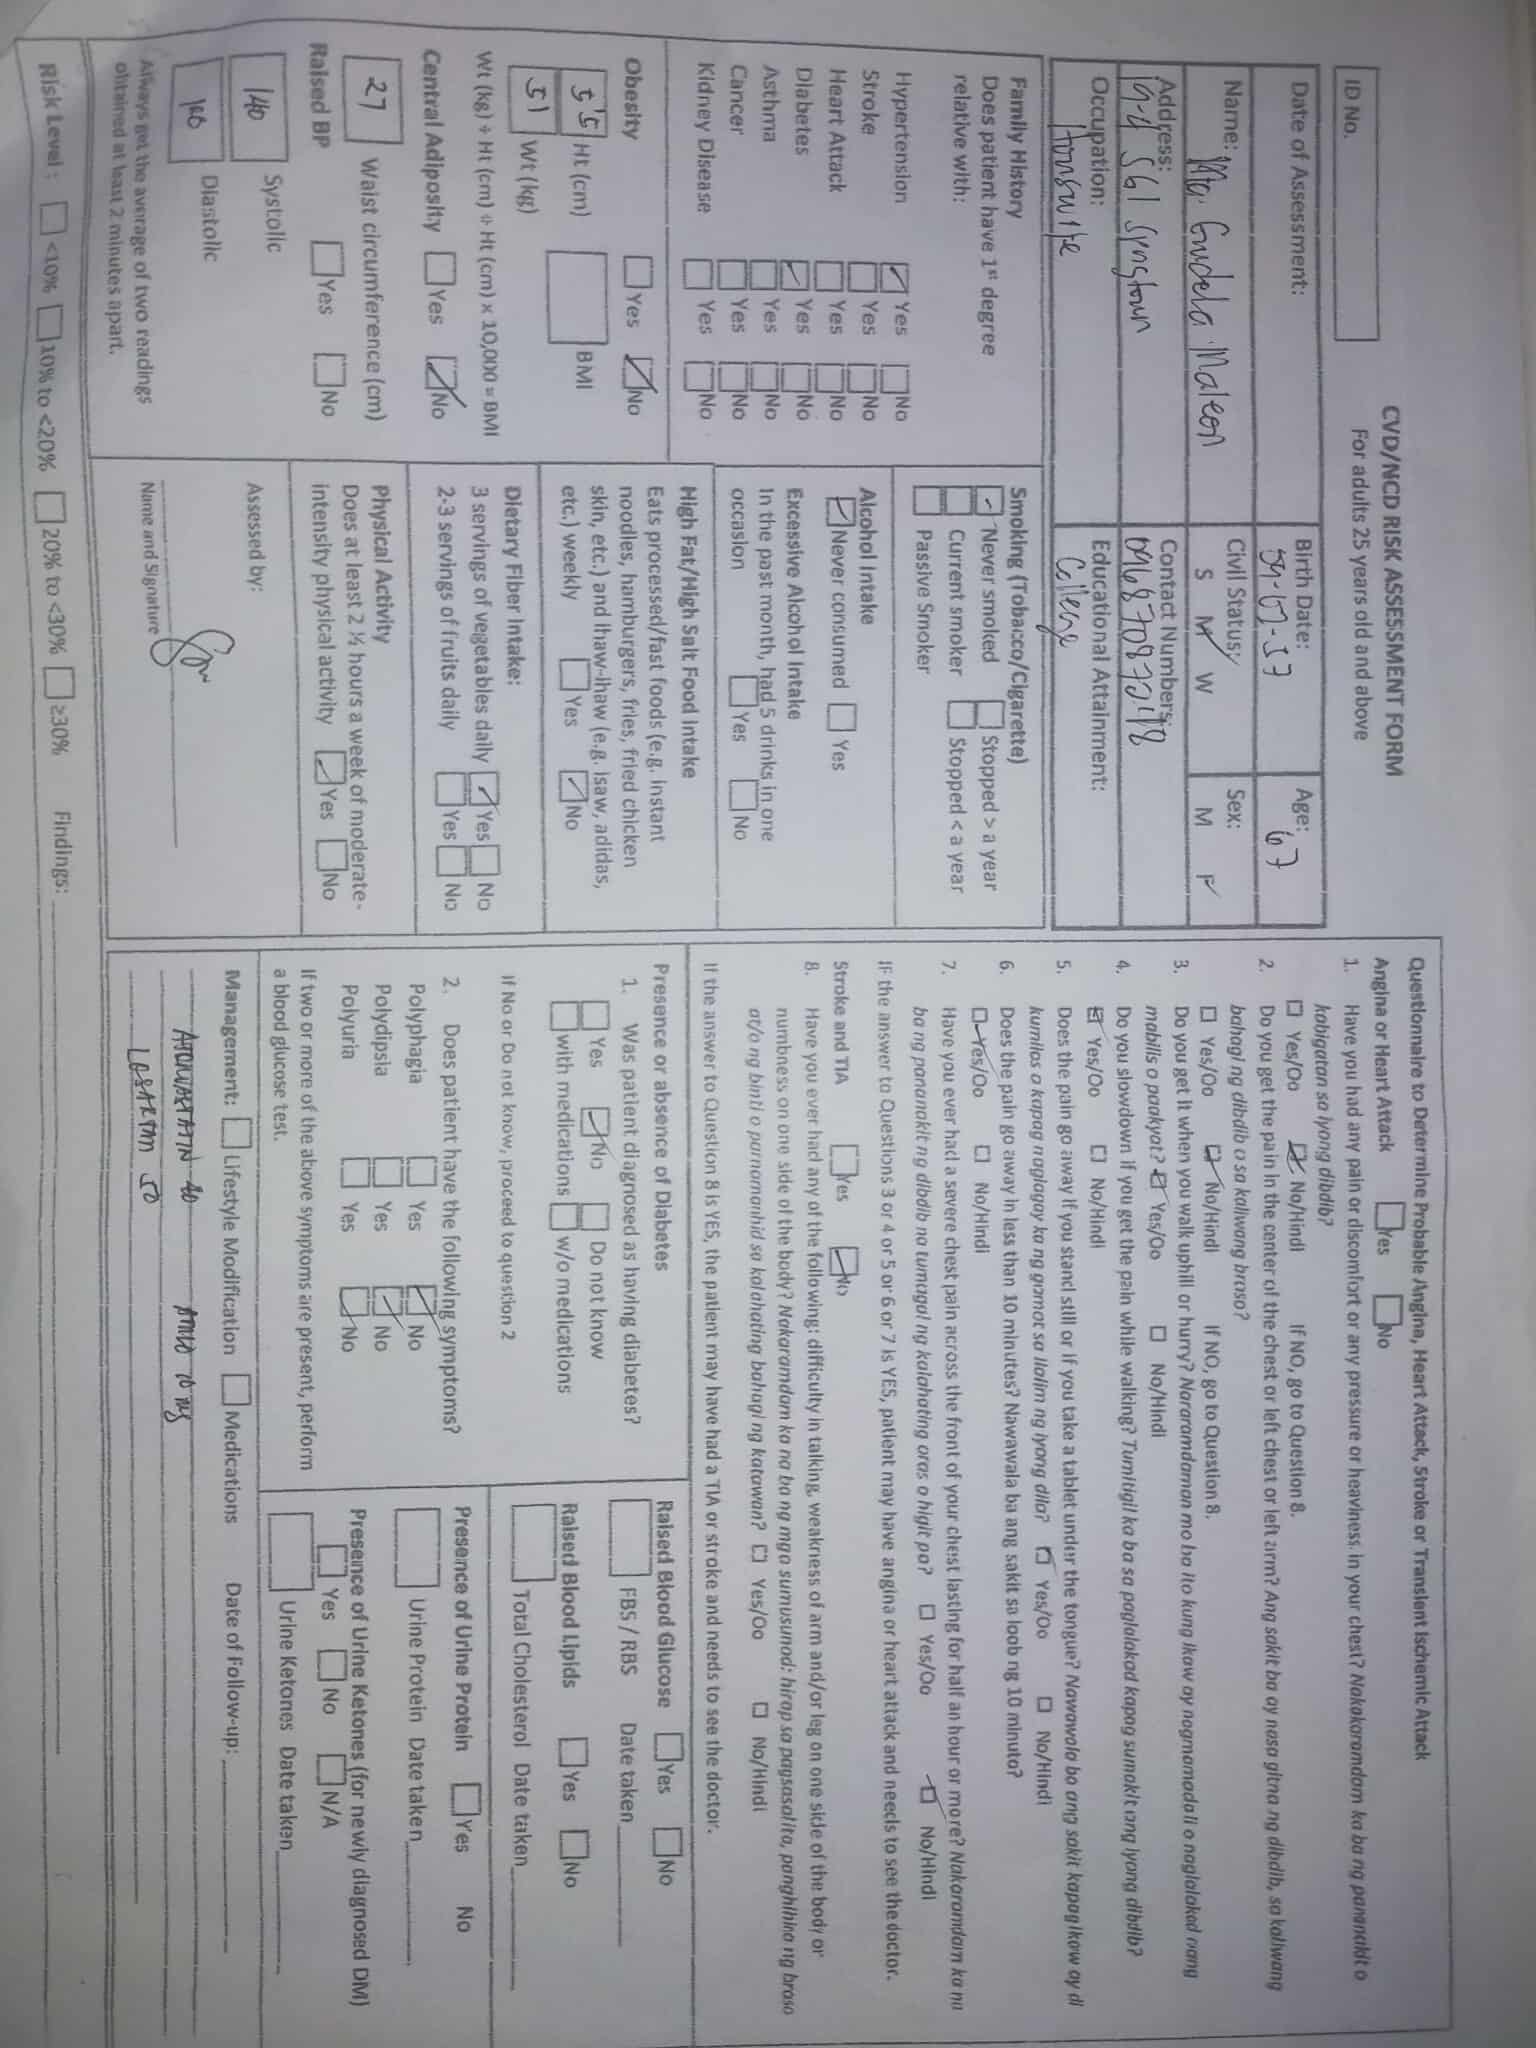 CVD/NCD RISK ASSESSMENT FORM
For adults 25 years old and above
ID No.
Date of Assessment:
Birth Date:
Age: 67
Name: Ma.
Civil Status: S M W
Sex: M F
Address: 19-A 561
Contact Numbers:
Occupation: Housewife
Educational Attainment: College
Family History
Does patient have 1st degree
relative with:
Hypertension Yes No
Stroke Yes No
Heart Attack Yes No
Diabetes Yes No
Asthma Yes No
Cancer Yes No
Kidney Disease Yes No
Obesity Yes No
5'5 Ht (cm) BMI
51 Wt (kg)
Wt (kg) ÷ Ht (cm) ÷ Ht (cm) x 10,000 = BMI
Central Adiposity Yes No
27 Waist circumference (cm)
Raised BP Yes No
140 Systolic
100 Diastolic
Always get the average of two readings
obtained at least 2 minutes apart.
Smoking (Tobacco/Cigarette)
Never smoked Stopped > a year
Current smoker Stopped < a year
Passive Smoker
Alcohol Intake
Never consumed Yes
Excessive Alcohol Intake
In the past month, had 5 drinks in one
occasion Yes No
High Fat/High Salt Food Intake
Eats processed/fast foods (e.g. instant
noodles, hamburgers, fries, fried chicken
skin, etc.) and ihaw-ihaw (e.g. isaw, adidas,
etc.) weekly Yes No
Dietary Fiber Intake:
3 servings of vegetables daily Yes No
2-3 servings of fruits daily Yes No
Physical Activity
Does at least 2 ½ hours a week of moderate-
intensity physical activity Yes No
Assessed by:
Name and Signature
Risk Level : <10% 10% to <20% 20% to <30% ≥30% Findings:
Questionnaire to Determine Probable Angina, Heart Attack, Stroke or Transient Ischemic Attack
Angina or Heart Attack Yes No
1. Have you had any pain or discomfort or any pressure or heaviness in your chest? Nakakaramdam ka ba ng pananakit o
kabigatan sa iyong dibdib?
Yes/Oo No/Hindi If NO, go to Question 8.
2. Do you get the pain in the center of the chest or left chest or left arm? Ang sakit ba ay nasa gitna ng dibdib, sa kaliwang
bahagi ng dibdib o sa kaliwang braso?
Yes/Oo No/Hindi If NO, go to Question 8.
3. Do you get it when you walk uphill or hurry? Nararamdaman mo ba ito kung ikaw ay nagmamadali o naglalakad nang
mabilis o paakyat? Yes/Oo No/Hindi
4. Do you slowdown if you get the pain while walking? Tumitigil ka ba sa paglalakad kapag sumakit ang iyong dibdib?
Yes/Oo No/Hindi
5. Does the pain go away if you stand still or if you take a tablet under the tongue? Nawawala ba ang sakit kapag ikaw ay di
kumilos o kapag naglagay ka ng gamot sa ilalim ng iyong dila? Yes/Oo No/Hindi
6. Does the pain go away in less than 10 minutes? Nawawala ba ang sakit sa loob ng 10 minuto?
Yes/Oo No/Hindi
7. Have you ever had a severe chest pain across the front of your chest lasting for half an hour or more? Nakaramdam ka na
ba ng pananakit ng dibdib na tumagal ng kalahating oras o higit pa? Yes/Oo No/Hindi
IF the answer to Questions 3 or 4 or 5 or 6 or 7 is YES, patient may have angina or heart attack and needs to see the doctor.
Stroke and TIA Yes No
8. Have you ever had any of the following: difficulty in talking, weakness of arm and/or leg on one side of the body or
numbness on one side of the body? Nakaramdam ka na ba ng mga sumusunod: hirap sa pagsasalita, panghihina ng braso
at/o ng binti o pamamanhid sa kalahating bahagi ng katawan? Yes/Oo No/Hindi
If the answer to Question 8 is YES, the patient may have had a TIA or stroke and needs to see the doctor.
Presence or absence of Diabetes
1. Was patient diagnosed as having diabetes?
Yes No Do not know
with medications w/o medications
If No or Do not know, proceed to question 2
2. Does patient have the following symptoms?
Polyphagia Yes No
Polydipsia Yes No
Polyuria Yes No
If two or more of the above symptoms are present, perform
a blood glucose test.
Raised Blood Glucose Yes No
FBS / RBS Date taken
Raised Blood Lipids Yes No
Total Cholesterol Date taken
Presence of Urine Protein Yes No
Urine Protein Date taken
Presence of Urine Ketones (for newly diagnosed DM)
Yes No N/A
Urine Ketones Date taken
Management: Lifestyle Modification Medications Date of Follow-up:
ATORVASTATIN 40
LOSARTAN 50